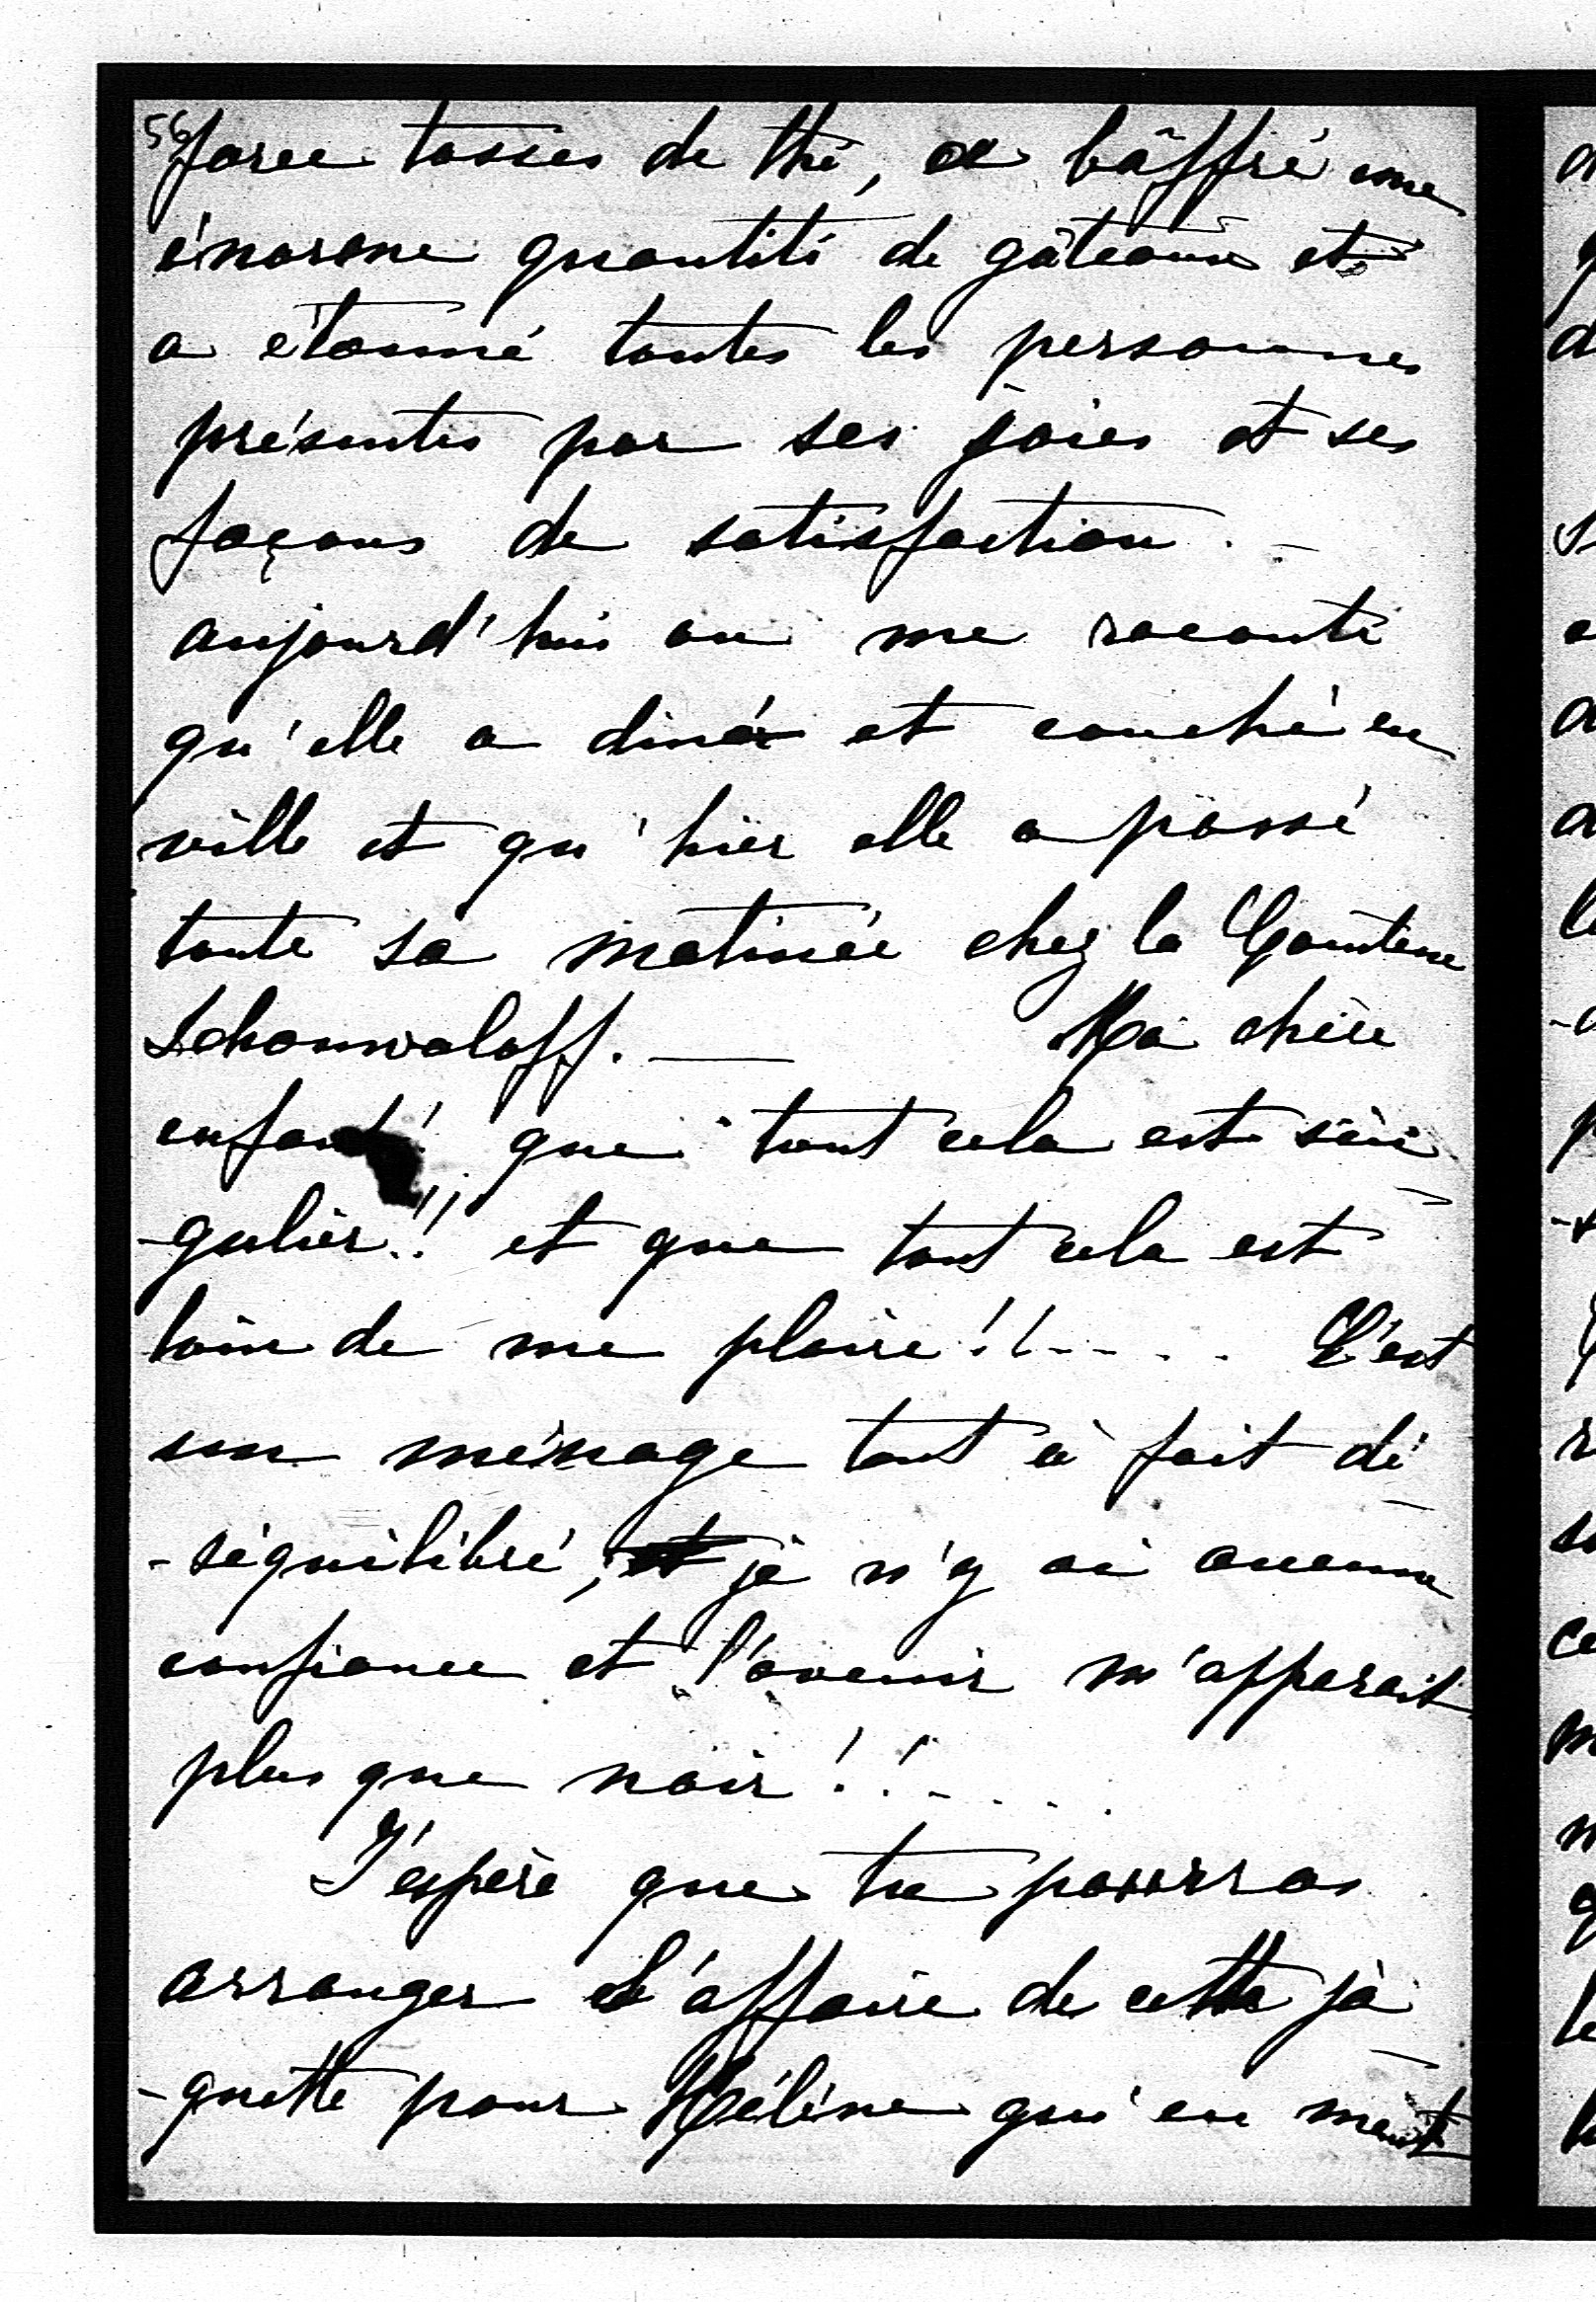 56
force tasses de thé, a bâffré une
énorme quantité de gâteaux et
a étonné toutes les personnes
présentes par ses joies et ses
façons de satisfaction. -
aujourd'hui on me raconte
qu'elle a diné et couché en
ville et qu'hier elle a passé
toute sa matinée chez la Comtesse
Schouwaloff. — Ma chère
enfant! que tout cela est sin
-gulier!! et que tout cela est
loin de me plaire!!.... C'est
un ménage tout à fait dé
-séquilibré, et je n'y ai aucune
confiance et l'avenir m'apparait
plus que noir!!.....
J'espère que tu pourras
arranger l'affaire de cette ja
-quette pour Hélène qui en meurt